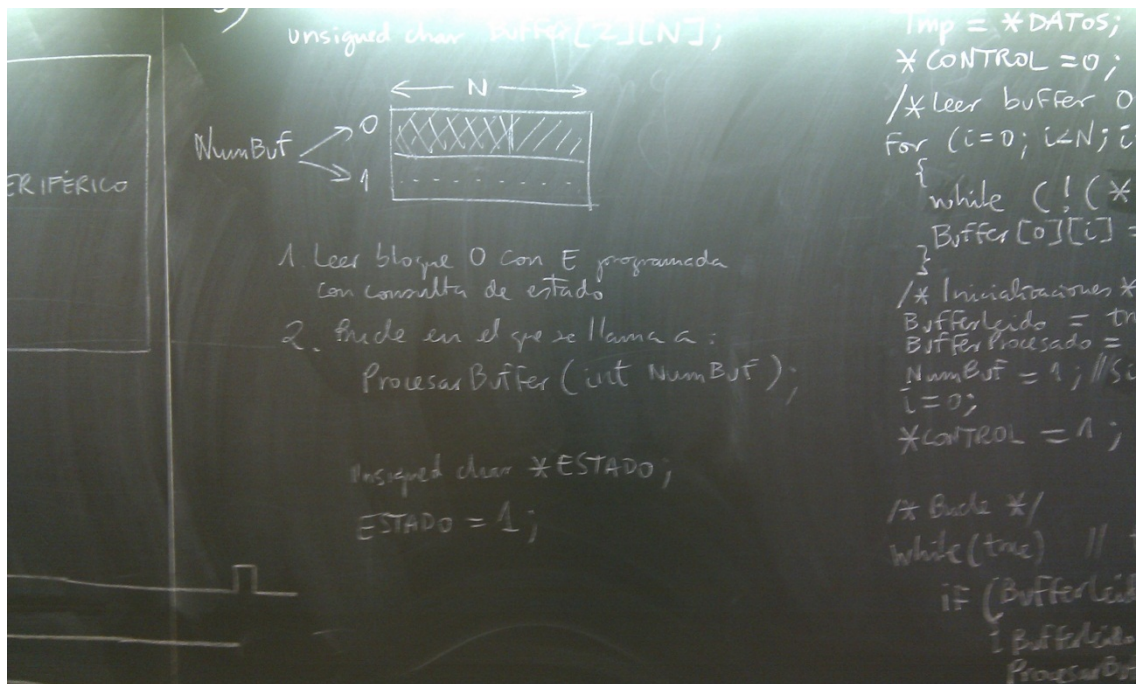 ERIFÉRICO
unsigned char Buffer[2][N];
N
NumBuf
0
1
1. Leer bloque 0 con E programada
con consulta de estado
2. Bucle en el que se llama a:
ProcesarBuffer (int NumBuf);
Unsigned char *ESTADO;
ESTADO = 1;
Tmp = *DATOS;
*CONTROL = 0;
/* Leer buffer 0
For (i=0; i<N; i
{
while (!(*
Buffer[0][i] =
}
/* Inicializaciones *
BufferLeido = tr
BufferProcesado =
NumBuf = 1; //Si
i=0;
*CONTROL = 1;
/* Bucle */
while(true) //
if (BufferLeid
BufferLeido
ProcesarBuf